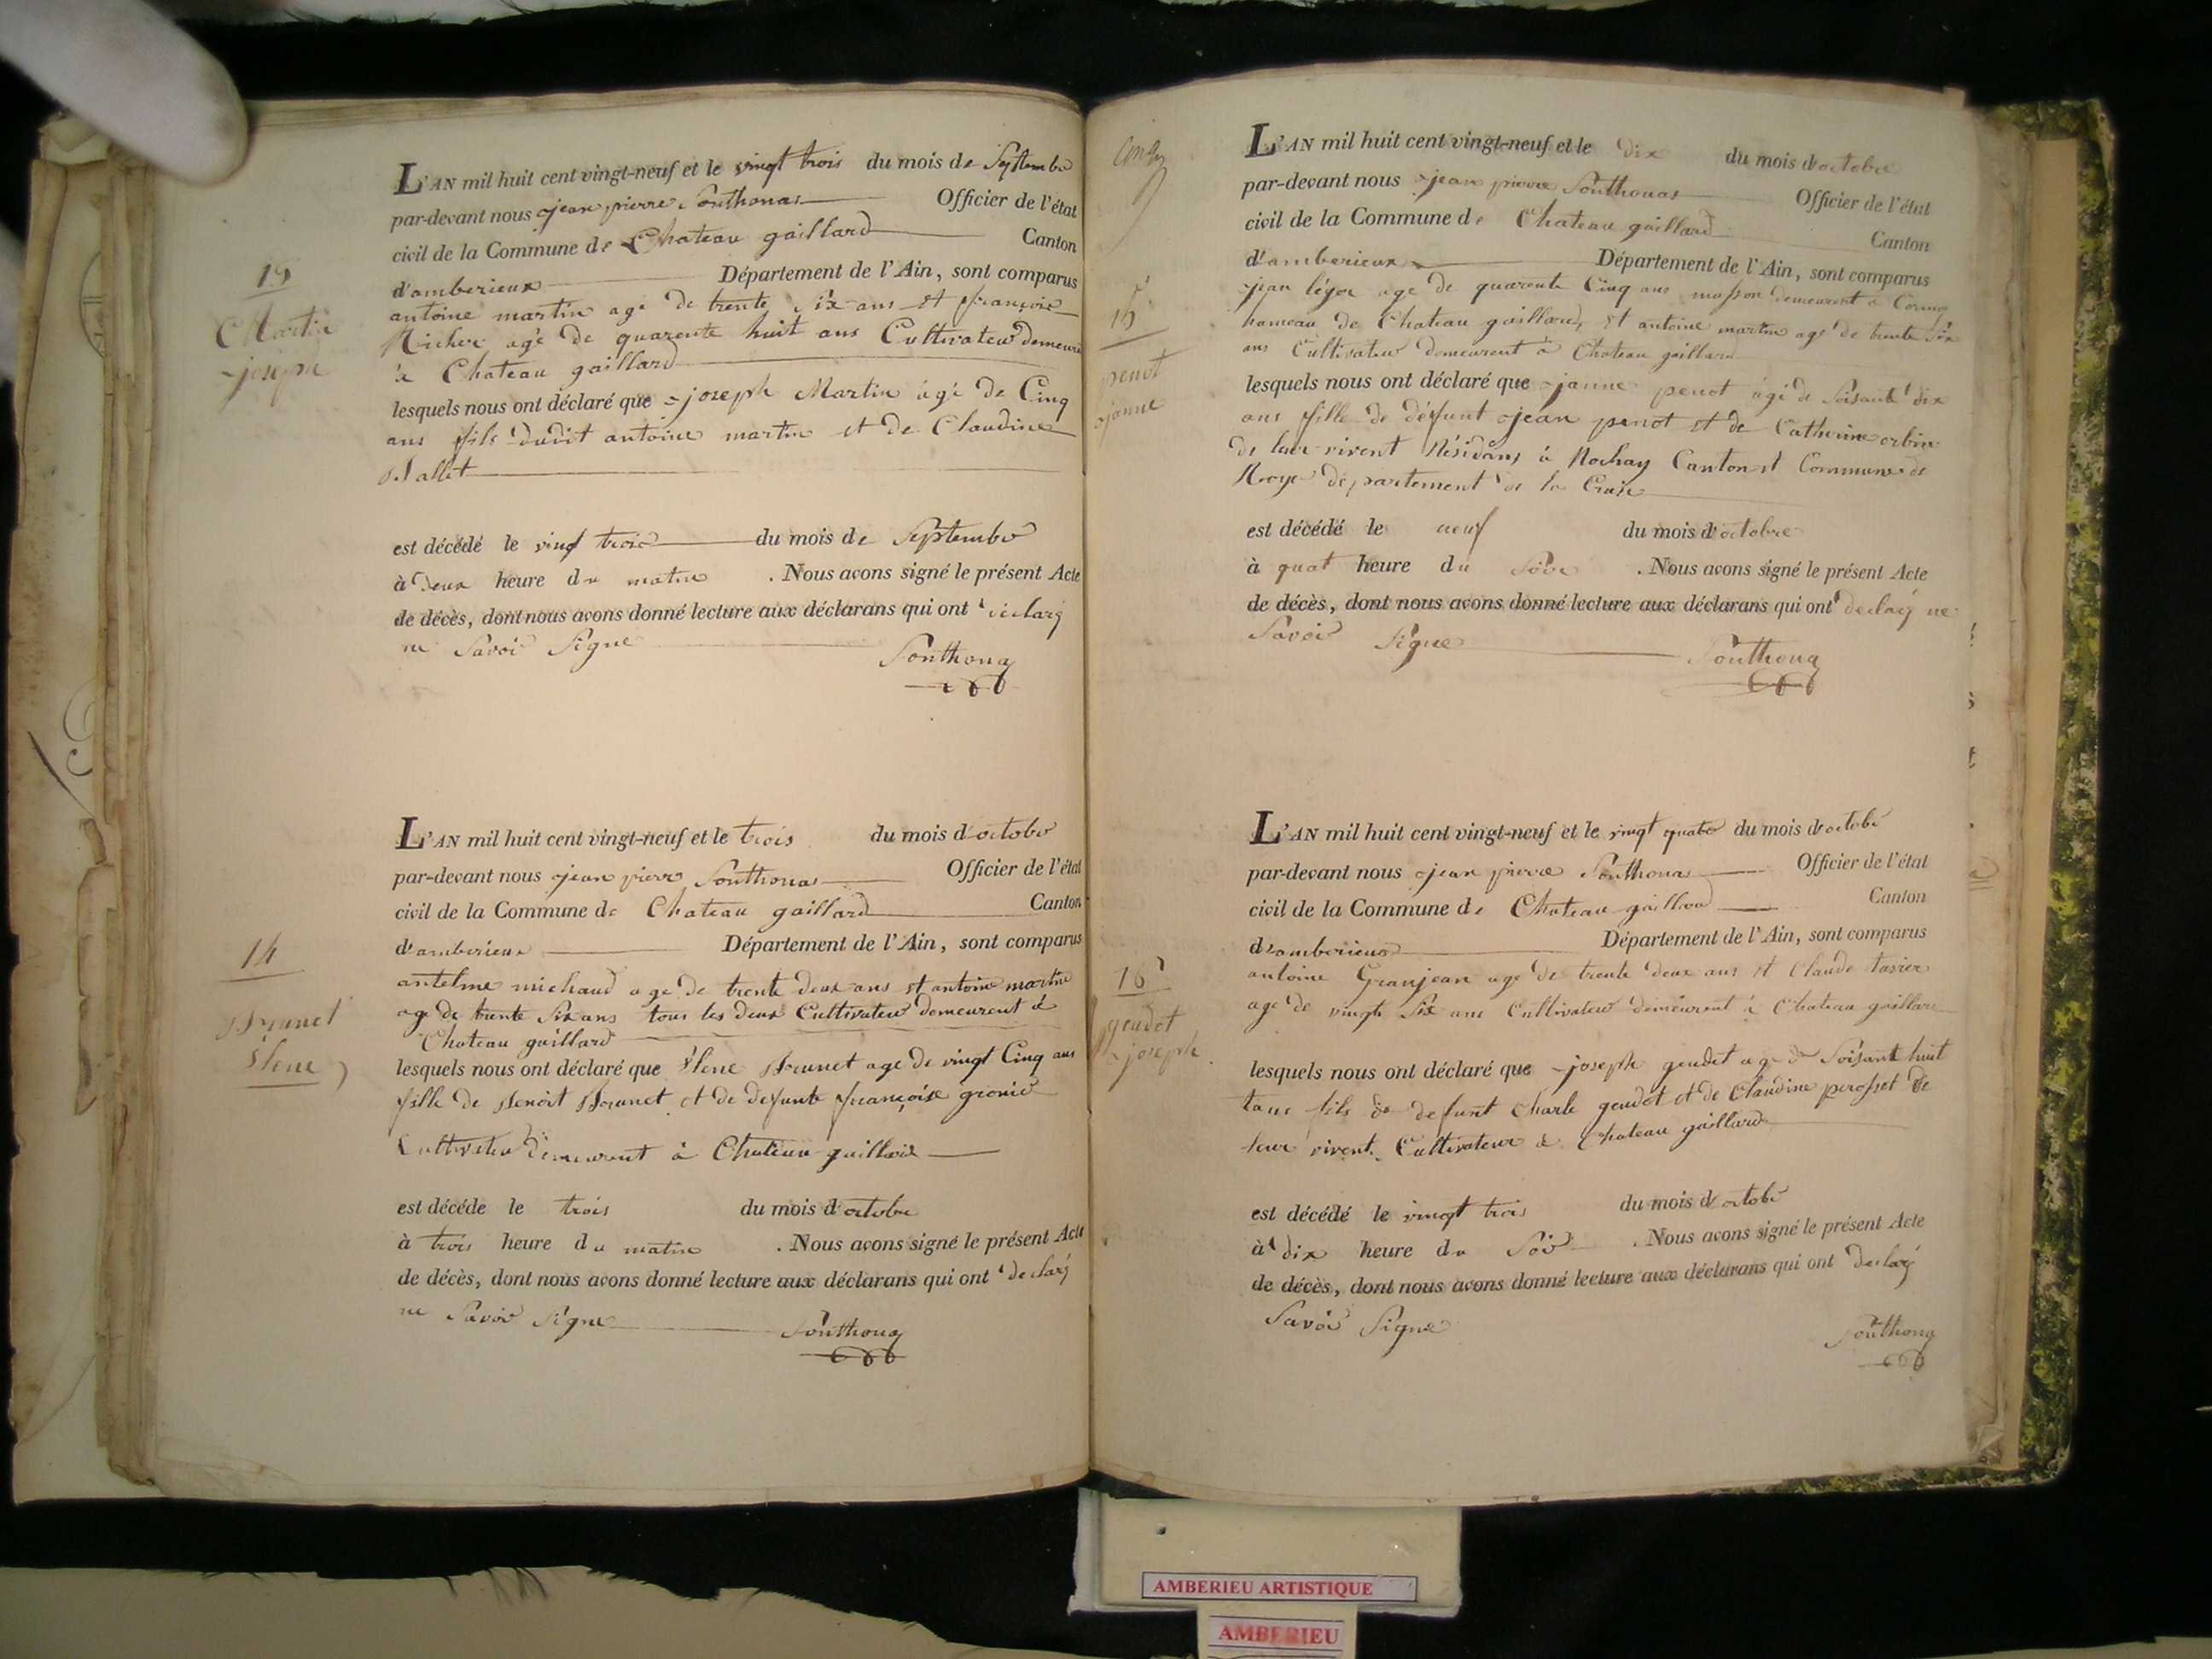 13
Martin
joseph
L'AN mil huit cent vingt-neuf et le vingt trois du mois de Septembre
par-devant nous jean pierre Ponthonas Officier de l'état
civil de la Commune de Chateau gaillard Canton
d'amberieux Département de l'Ain, sont comparus
antoine martin agé de trente six ans et françois
Richer agé de quarente huit ans Cultivateur demeure
à Chateau gaillard
lesquels nous ont déclaré que joseph Martin agé de Cinq
ans fils dudit antoine martin et de Claudine
est décédé le vingt trois du mois de Septembre
à deux heure du matin . Nous avons signé le présent Acte
de décès, dont nous avons donné lecture aux déclarans qui ont déclaré
ne Savoir Signe
Ponthona
14
Brunet
L'AN mil huit cent vingt-neuf et le trois du mois d'octobre
par-devant nous jean pierre Ponthonas Officier de l'état
civil de la Commune de Chateau gaillard Canton
d'amberieux Département de l'Ain, sont comparus
antelme michaud age de trente deux ans et antoine martin
age de trente Six ans tous les deux Cultivateur demeurent à
Chateau gaillard
lesquels nous ont déclaré que Brunet age de vingt Cinq ans
fille de Benoit Brunet et de defunte françoise
Cultivateur demeurent à Chateau gaillard
est décéde le trois du mois d'octobre
à trois heure du matin . Nous avons signé le présent Acte
de décès, dont nous avons donné lecture aux déclarans qui ont déclaré
ne Savoir Signe Ponthona
15
penot
janne
L'AN mil huit cent vingt-neuf et le dix du mois d'octobre
par-devant nous jean pierre Ponthonas Officier de l'état
civil de la Commune de Chateau gaillard Canton
d'amberieux Département de l'Ain, sont comparus
jean léger age de quarente Cinq ans masson demeurent à Cormoz
hameau de Chateau gaillard, et antoine martin agé de trente Six
ans Cultivateur demeurent à Chateau gaillard
lesquels nous ont déclaré que janne penot agé de Soisante dix
ans fille de défunt jean penot et de Catherine
de leur vivent Résidans à Rochay Canton et Commune de
Royer département de la Creuse
est décédé le neuf du mois d'octobre
à quat heure du Soir . Nous avons signé le présent Acte
de décès, dont nous avons donné lecture aux déclarans qui ont déclaré ne
Savoir Signe Ponthona
16
geudet
joseph
L'AN mil huit cent vingt-neuf et le vingt quatre du mois d'octobre
par-devant nous jean pierre Ponthonas Officier de l'état
civil de la Commune de Chateau gaillard Canton
d'amberieux Département de l'Ain, sont comparus
antoine Granjean age de trente deux ans et Claude tavier
age de vingt Six ans Cultivateur demeurent à Chateau gaillard
lesquels nous ont déclaré que joseph geudet age de Soisante huit
fils de defunt Charle geudet et de Claudine perosset de
leur vivent Cultivateur à Chateau gaillard
est décédé le vingt trois du mois d'octobre
à dix heure du Soir . Nous avons signé le présent Acte
de décès, dont nous avons donné lecture aux déclarans qui ont déclaré
Savoir Signe
Ponthona
AMBERIEU ARTISTIQUE
AMBERIEU